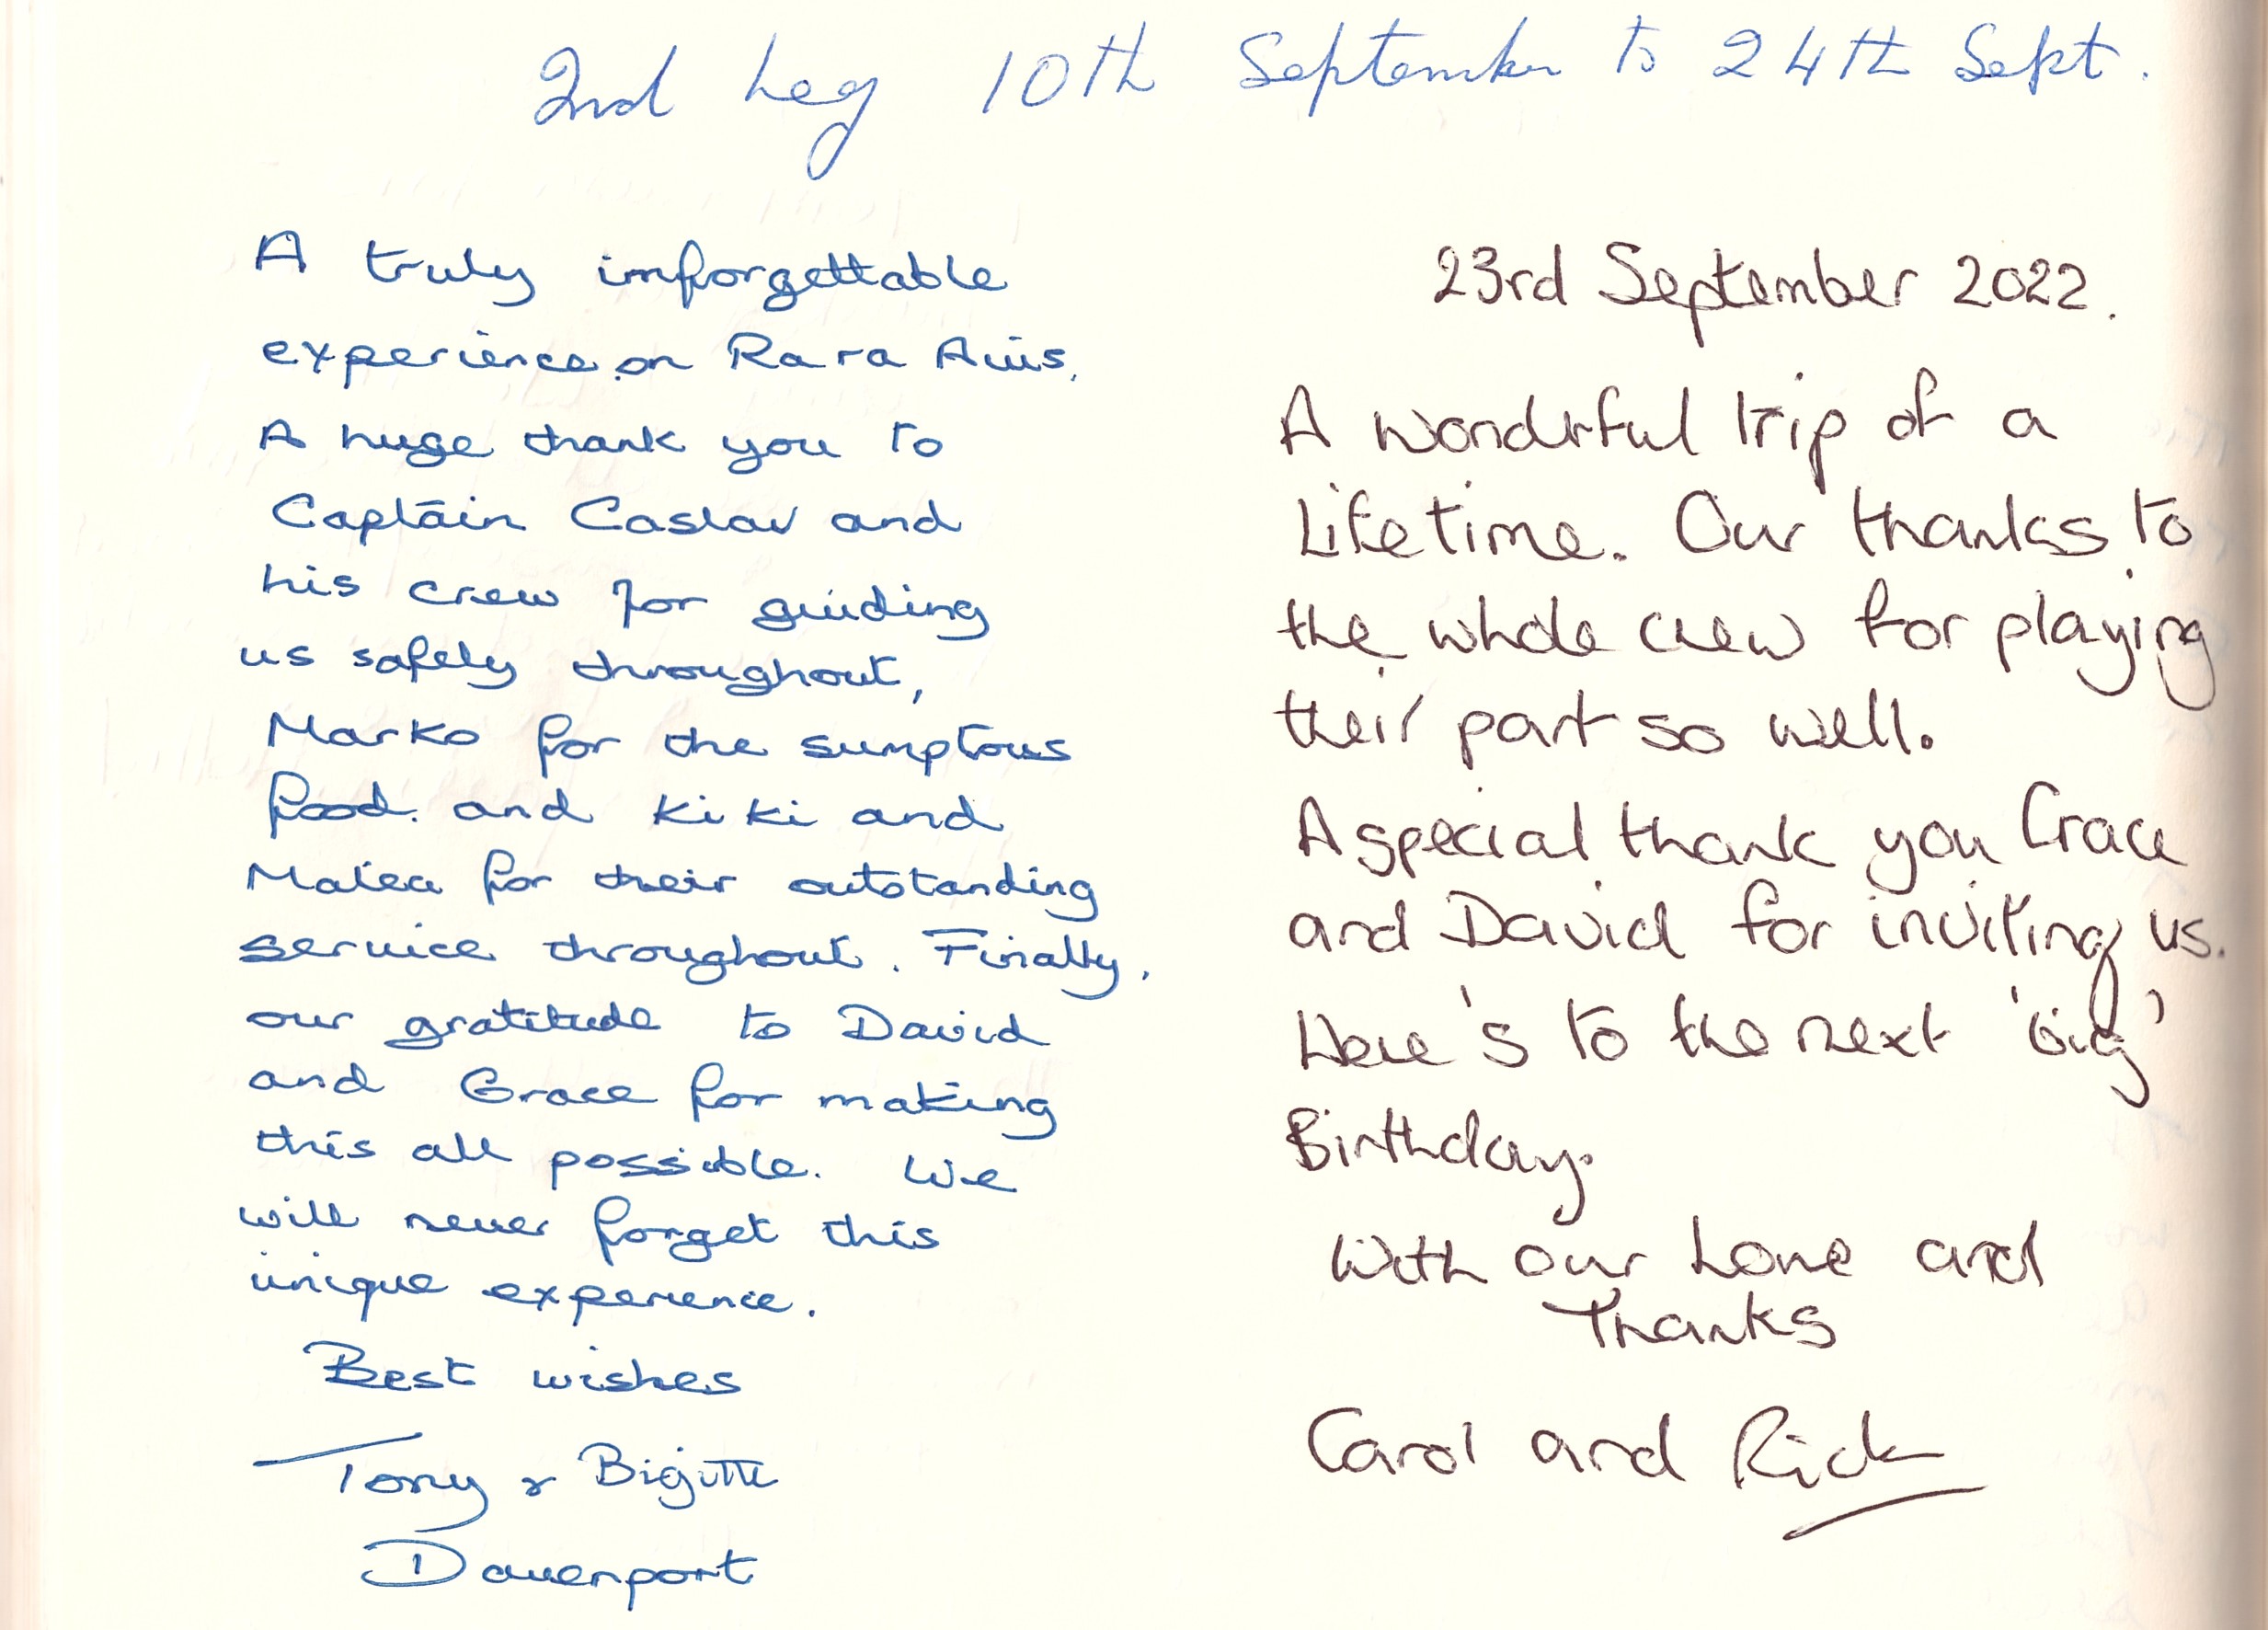 2nd Leg 10th September to 24th Sept.
A truly imforgettable
experience on Rara Avis.
A huge thank you to
Captain Caslav and
his crew for guiding
us safely throughout,
Marko for the sumptous
food. and Kiki and
Matea for their outstanding
service throughout. Finally,
our gratitude to David
and Grace for making
this all possible. We
will never forget this
unique experience.
Best wishes
Tony & Bigitte
Davenport
23rd September 2022.
A wonderful trip of a
Lifetime. Our thanks to
the whole crew for playing
their part so well.
A special thank you Grace
and David for inviting us.
Here's to the next 'big'
Birthday.
With our Love and
Thanks
Carol and Rick